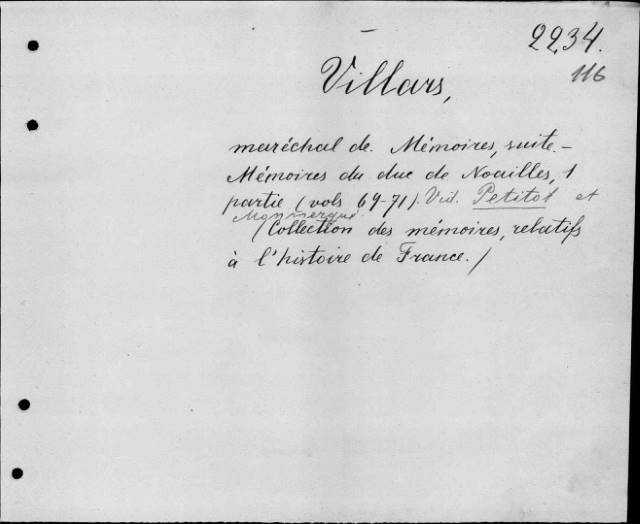 2234.
116
Villars,
maréchal de. Mémoires, suite.-
Mémoires du duc de Noailles, 1
partie (vols 69-71). Vid. Petitot et
Monmerqué
/Collection des mémoires, relatifs
à l'histoire de France./